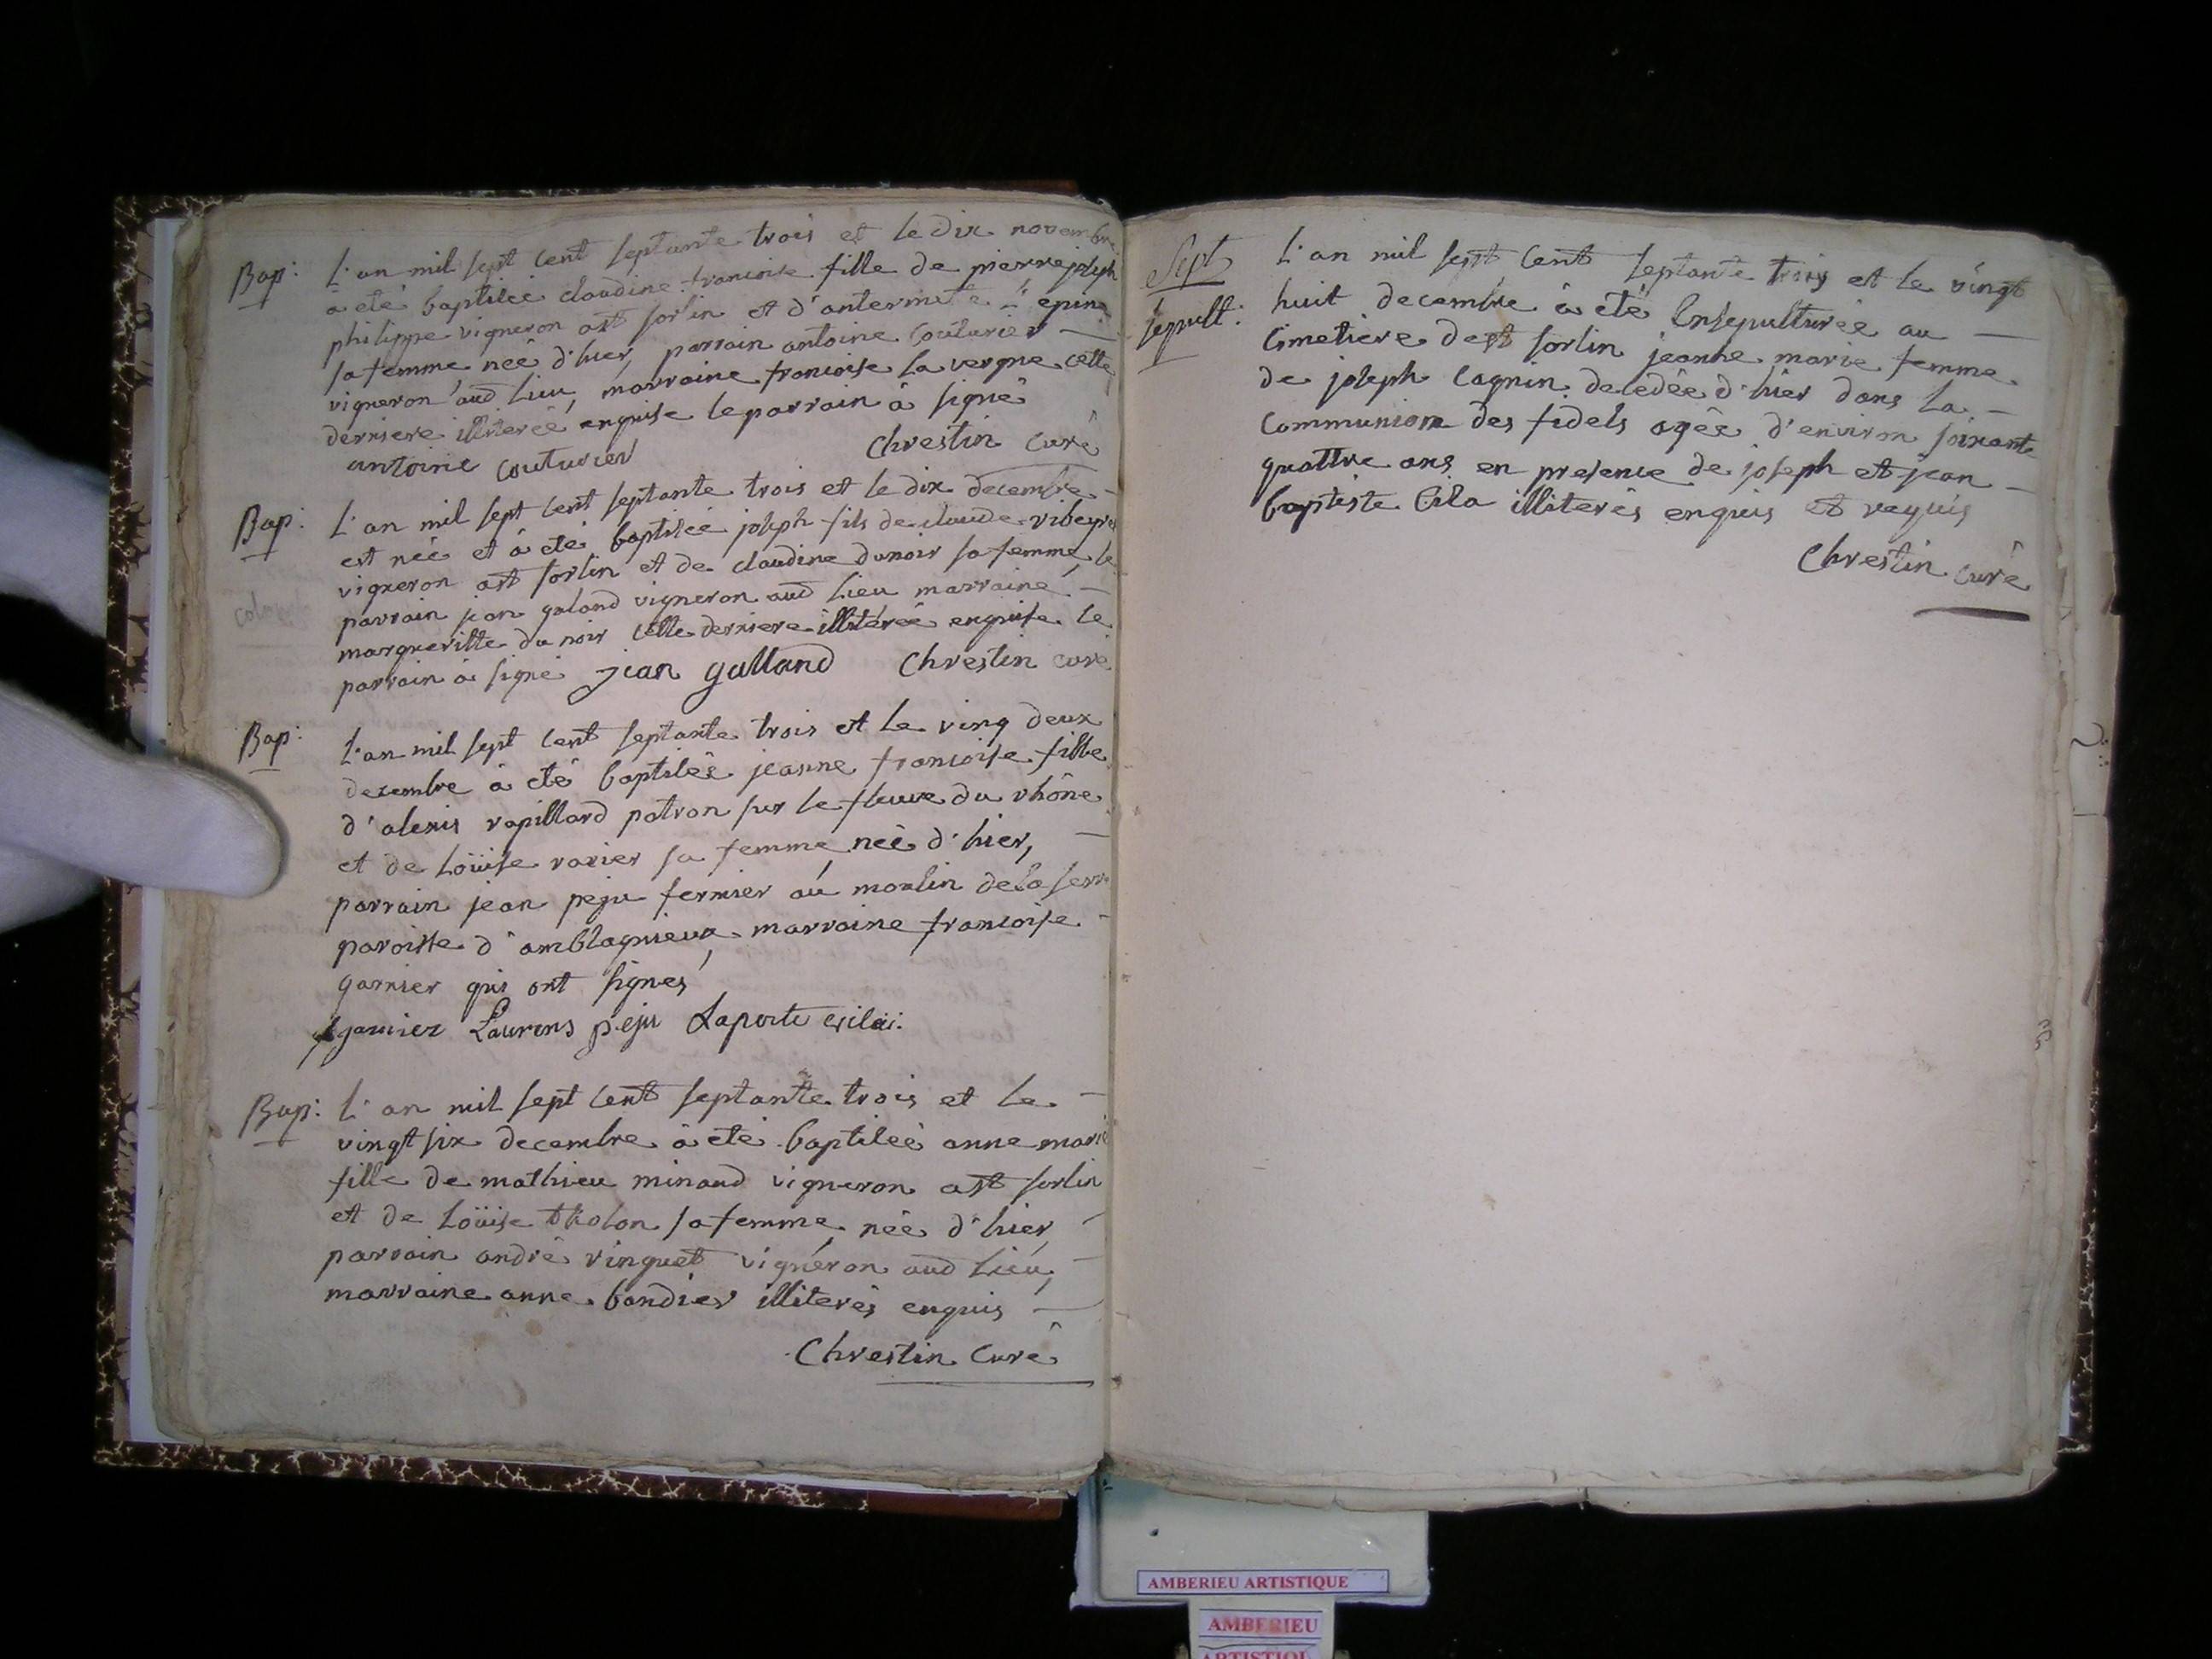 Bap: L'an mil sept cent septante trois et le dix novembre
a eté baptisée claudine francoise fille de pierre joseph
philippe vigneron a st sorlin et d'antermete l'epine
sa femme neé d'hier, parrain antoine Couturier
vigneron aud lieu, marraine francoise la vergne cette
derniere illiterée enquise le parrain à signé
antoine couturier Chrestin Curé
Bap: L'an mil sept cent septante trois et le dix decembre
est née et à eté baptisée joseph fils de claude vibeyres
vigneron a st sorlin et de claudine dunoir sa femme, le
parrain jean galand vigneron aud lieu marraine
margueritte du noir cette derniere illiterée enquise le
parrain à signé jean galland Chrestin curé
Bap: L'an mil sept cent septante trois et le ving deux
decembre à eté baptisée jeanne francoise fille
d'alexis rapillard patron sur le fleuve du rhône
et de Loüise ravier sa femme neé d'hier,
parrain jean peju fermier au moulin de la serr
paroisse d'amblagnieux, marraine francoise
garnier qui ont signes
garnier Laurens peju Laporte
Bap: L'an mil sept cent septante trois et le
vingt six decembre à eté baptisée anne marie
fille de mathieu minand vigneron a st sorlin
et de Loüise tholon sa femme, née d'hier,
parrain andré vinguet vigneron aud Lieu,
marraine anne bandier illiterés enquis
Chrestin Curé
Sept
sepult: L'an mil sept cent septante trois et le vingt
huit decembre à eté Ensepulturée au
Cimetiere de st sorlin jeanne marie femme
de joseph cagnin decedée d'hier dans la
Communion des fidels agée d'environ soixante
quattre ans en presence de joseph et jean
baptiste Cila illiterés enquis et requis
Chrestin Curé
AMBERIEU ARTISTIQUE
AMBERIEU